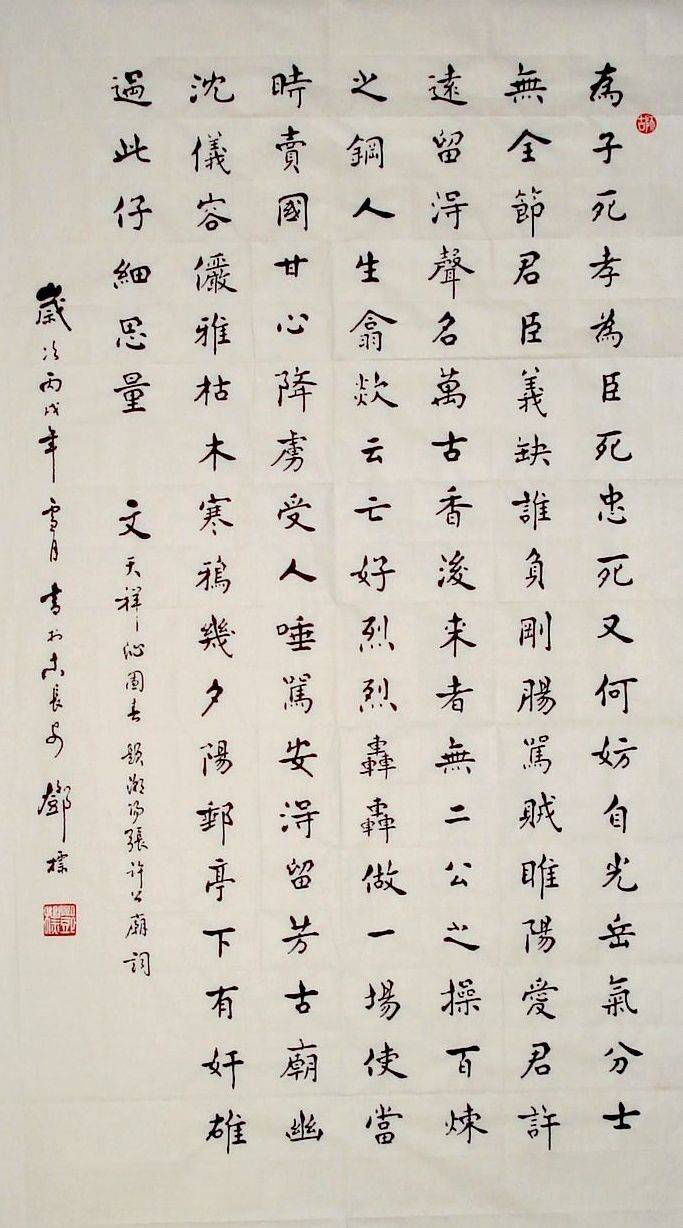 為子死孝為臣死忠死又何妨自光岳氣分士
無全節君臣義缺誰負剛腸罵賊睢陽愛君許
遠留得聲名萬古香後来者無二公之操百煉
之鋼人生翕歘云亡好烈烈轟轟做一場使當
時賣國甘心降虜受人唾罵安得留芳古廟幽
沈儀容儼雅枯木寒鴉幾夕陽郵亭下有奸雄
過此仔細思量
文天祥沁園春題潮陽張許公廟詞
歲次丙戌年雪月書於古長安鄧標